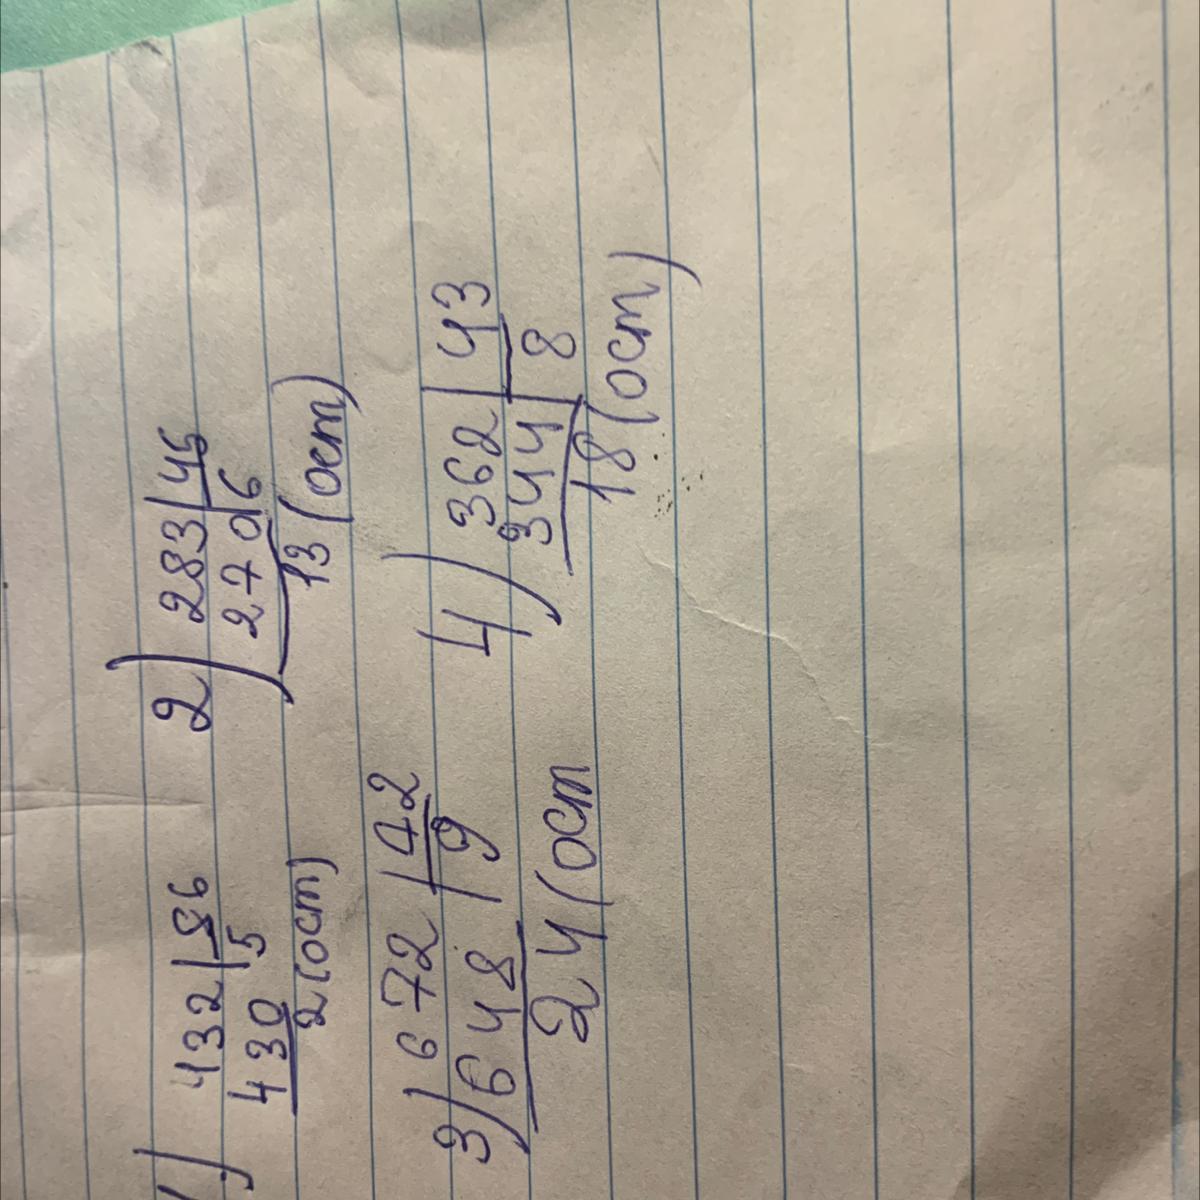 1) 432 | 86
430 | 5
2 (ост)
2) 283 | 45
270 | 6
13 (ост)
3) 672 | 42
648 | 9
24 (ост
4) 362 | 43
344 | 8
18 (ост)